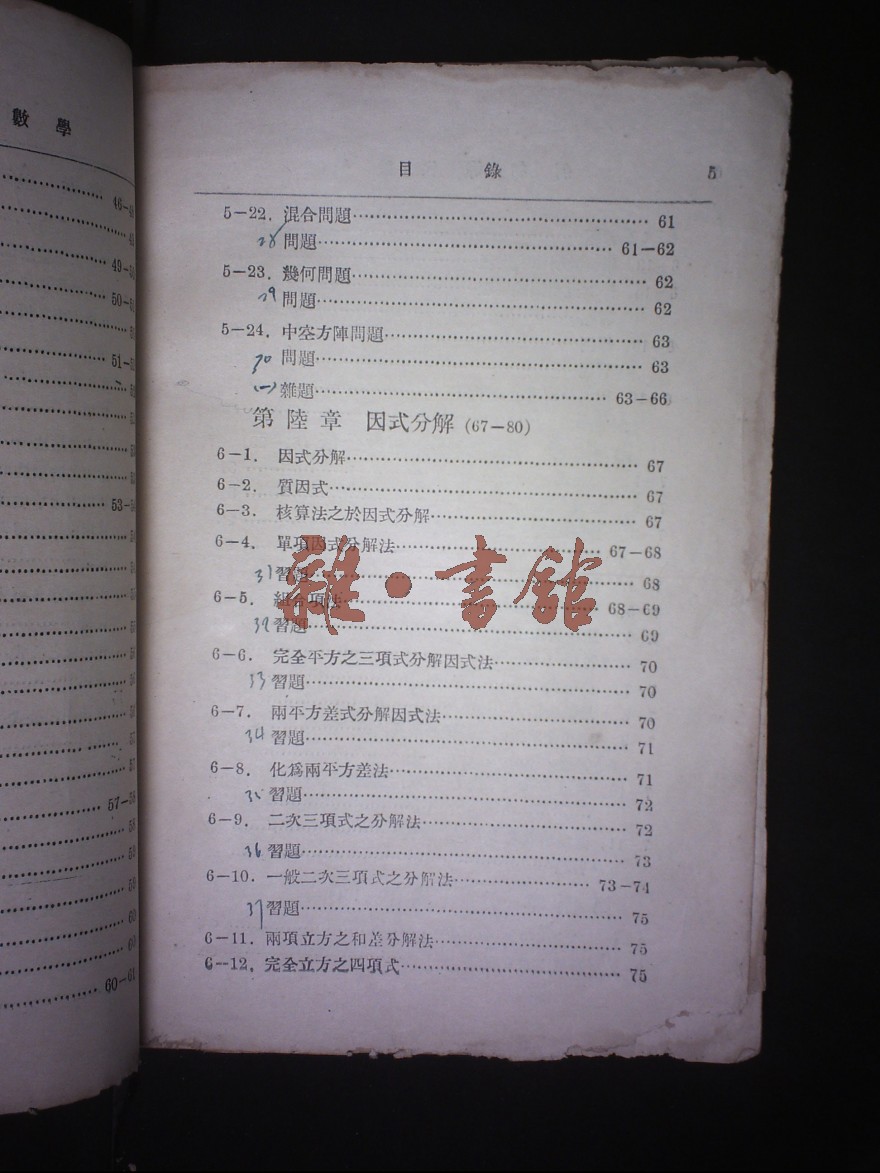 數 學
46-4
49-5
50-5
51-5
53-5
57-58
58
58
59
60
60
60-61
目 錄 5
5-22. 混合問題 61
28 問題 61-62
5-23. 幾何問題 62
29 問題 62
5-24. 中空方陣問題 63
30 問題 63
(一) 雜題 63-66
第 陸 章 因式分解 (67-80)
6-1. 因式分解 67
6-2. 質因式 67
6-3. 核算法之於因式分解 67
6-4. 單項因式分解法 67-68
31 習題 68
6-5. 組合項法 68-69
32 習題 69
雜·書館
6-6. 完全平方之三項式分解因式法 70
33 習題 70
6-7. 兩平方差式分解因式法 70
34 習題 71
6-8. 化爲兩平方差法 71
35 習題 72
6-9. 二次三項式之分解法 72
36 習題 73
6-10. 一般二次三項式之分解法 73-74
37 習題 75
6-11. 兩項立方之和差分解法 75
6-12. 完全立方之四項式 75